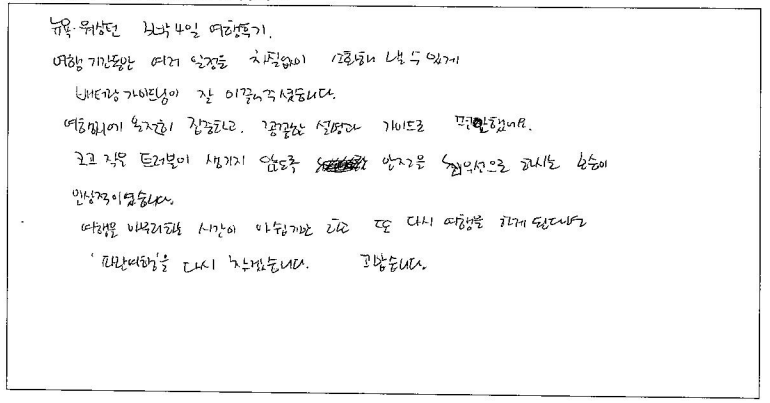 뉴욕·워싱턴 3박4일 여행후기.
여행 기간동안 여러 일정을 차질없이 소화해 낼 수 있게
베터랑 가이드님이 잘 이끌어주셨습니다.
여행에 온전히 집중하고, 꼼꼼한 설명과 가이드로 편안했네요.
크고 작은 트러블이 생기지 않도록 안전을 최우선으로 하시는 모습이
인상적이였습니다.
여행을 마무리하는 시간이 아쉽기만 하고 또 다시 여행을 하게 된다면
'파란여행'을 다시 찾겠습니다. 고맙습니다.